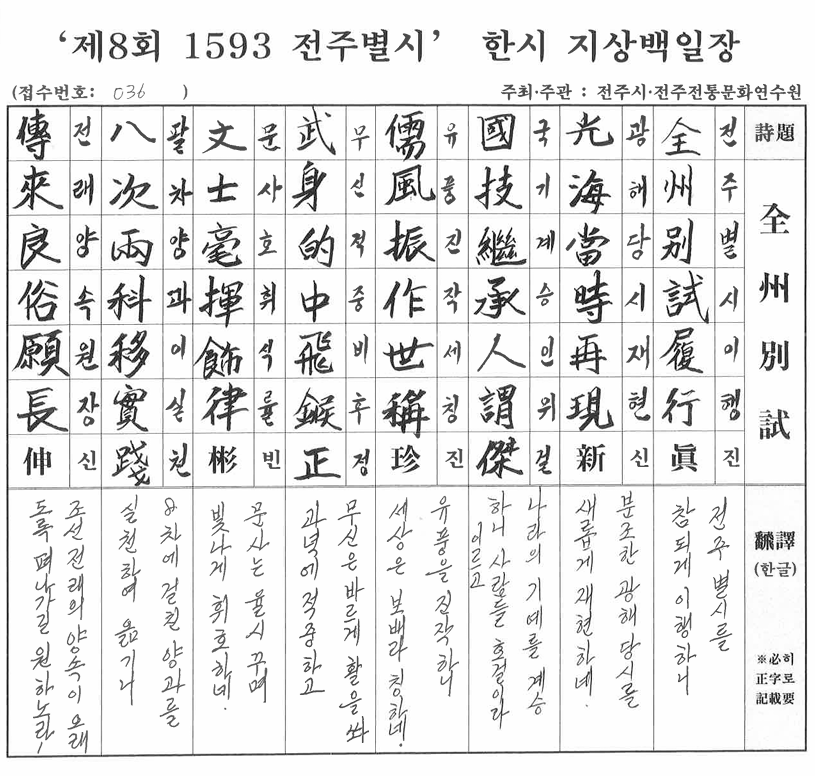 ‘제8회 1593 전주별시’ 한시 지상백일장
(접수번호: 036 )
주최·주관 : 전주시·전주전통문화연수원
詩題
全州別試
全州別試履行眞
전주별시이행진
光海當時再現新
광해당시재현신
國技繼承人謂傑
국기계승인위걸
儒風振作世稱珍
유풍진작세칭진
武身的中飛鍭正
무신적중비후정
文士毫揮飾律彬
문사호휘식률빈
八次兩科移實踐
팔차양과이실천
傳來良俗願長伸
전래양속원장신
飜譯
(한글)
※必히
正字로
記載要
전주 별시를
참되게 이행하니
분조한 광해 당시를
새롭게 재현하네.
나라의 기예를 계승
하니 사람들 호걸이라
이르고
유풍을 진작하니
세상은 보배라 칭하네!
무신은 바르게 활을 쏴
과녁에 적중하고
문사는 율시 꾸며
빛나게 휘호하네.
8차에 걸친 양과를
실천하여 옮기니
조선 전래의 양속이 오래
도록 펴나가길 원하노라!